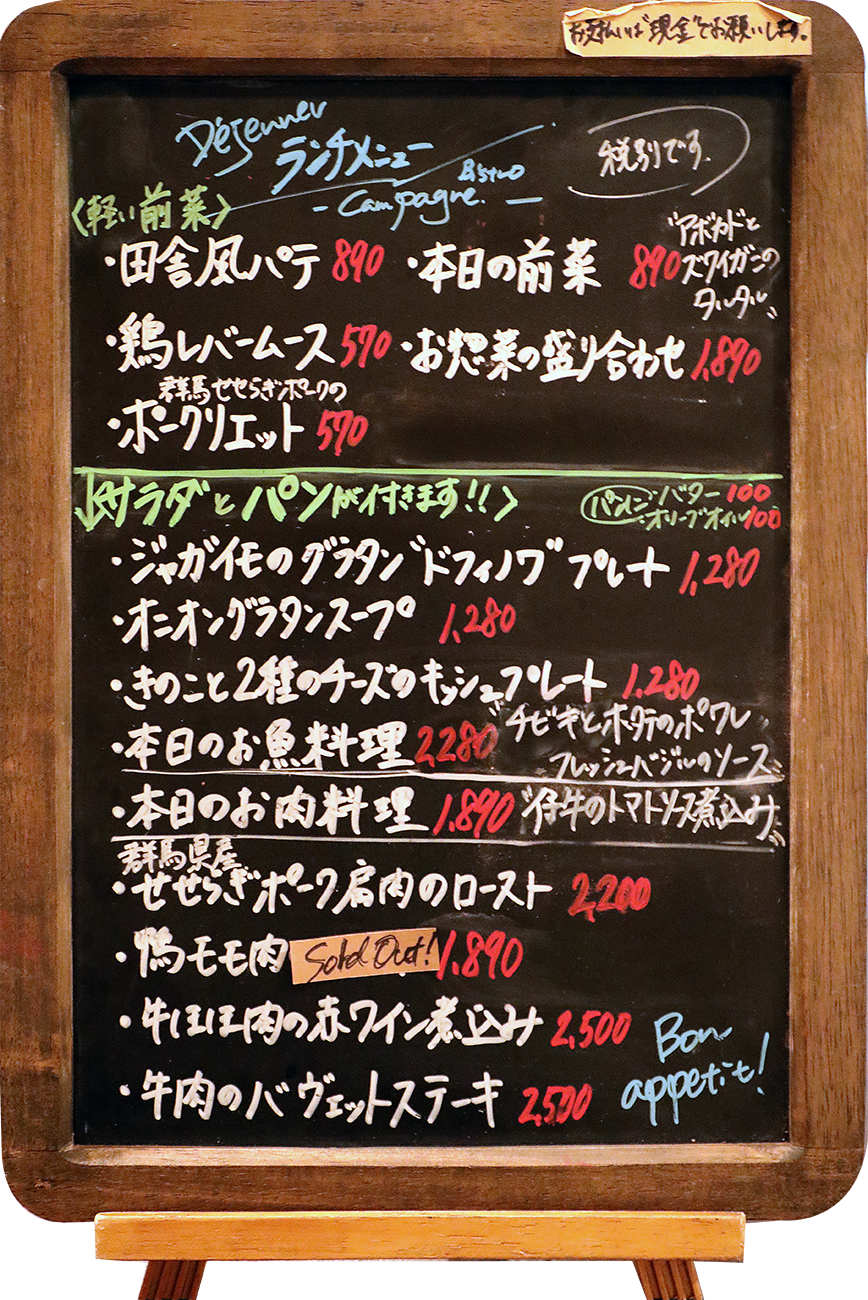 お支払いは"現金"でお願いします。
Déjeuner
ランチメニュー
Bistro
- Campagne. -
税別です。
〈軽い前菜〉
・田舎風パテ 890 ・本日の前菜 890 "アボカドと
ズワイガニの
タルタル"
・鶏レバームース 570 ・お惣菜の盛り合わせ 1,890
群馬せせらぎポークの
・ポークリエット 570
サラダとパンが付きます!!〉
パンに ・バター 100
・オリーブオイル 100
・ジャガイモのグラタン"ドフィノワ"プレート 1,280
・オニオングラタンスープ 1,280
・きのこと2種のチーズのキッシュプレート 1,280
・本日のお魚料理 2,280 "チビキとホタテのポワレ
フレッシュバジルのソース"
・本日のお肉料理 1,890 "仔牛のトマトソース煮込み"
群馬県産
・せせらぎポーク肩肉のロースト 2,200
・鴨モモ肉 Sold Out! 1,890
・牛ほほ肉の赤ワイン煮込み 2,500
・牛肉のバヴェットステーキ 2,500
Bon
appetit!